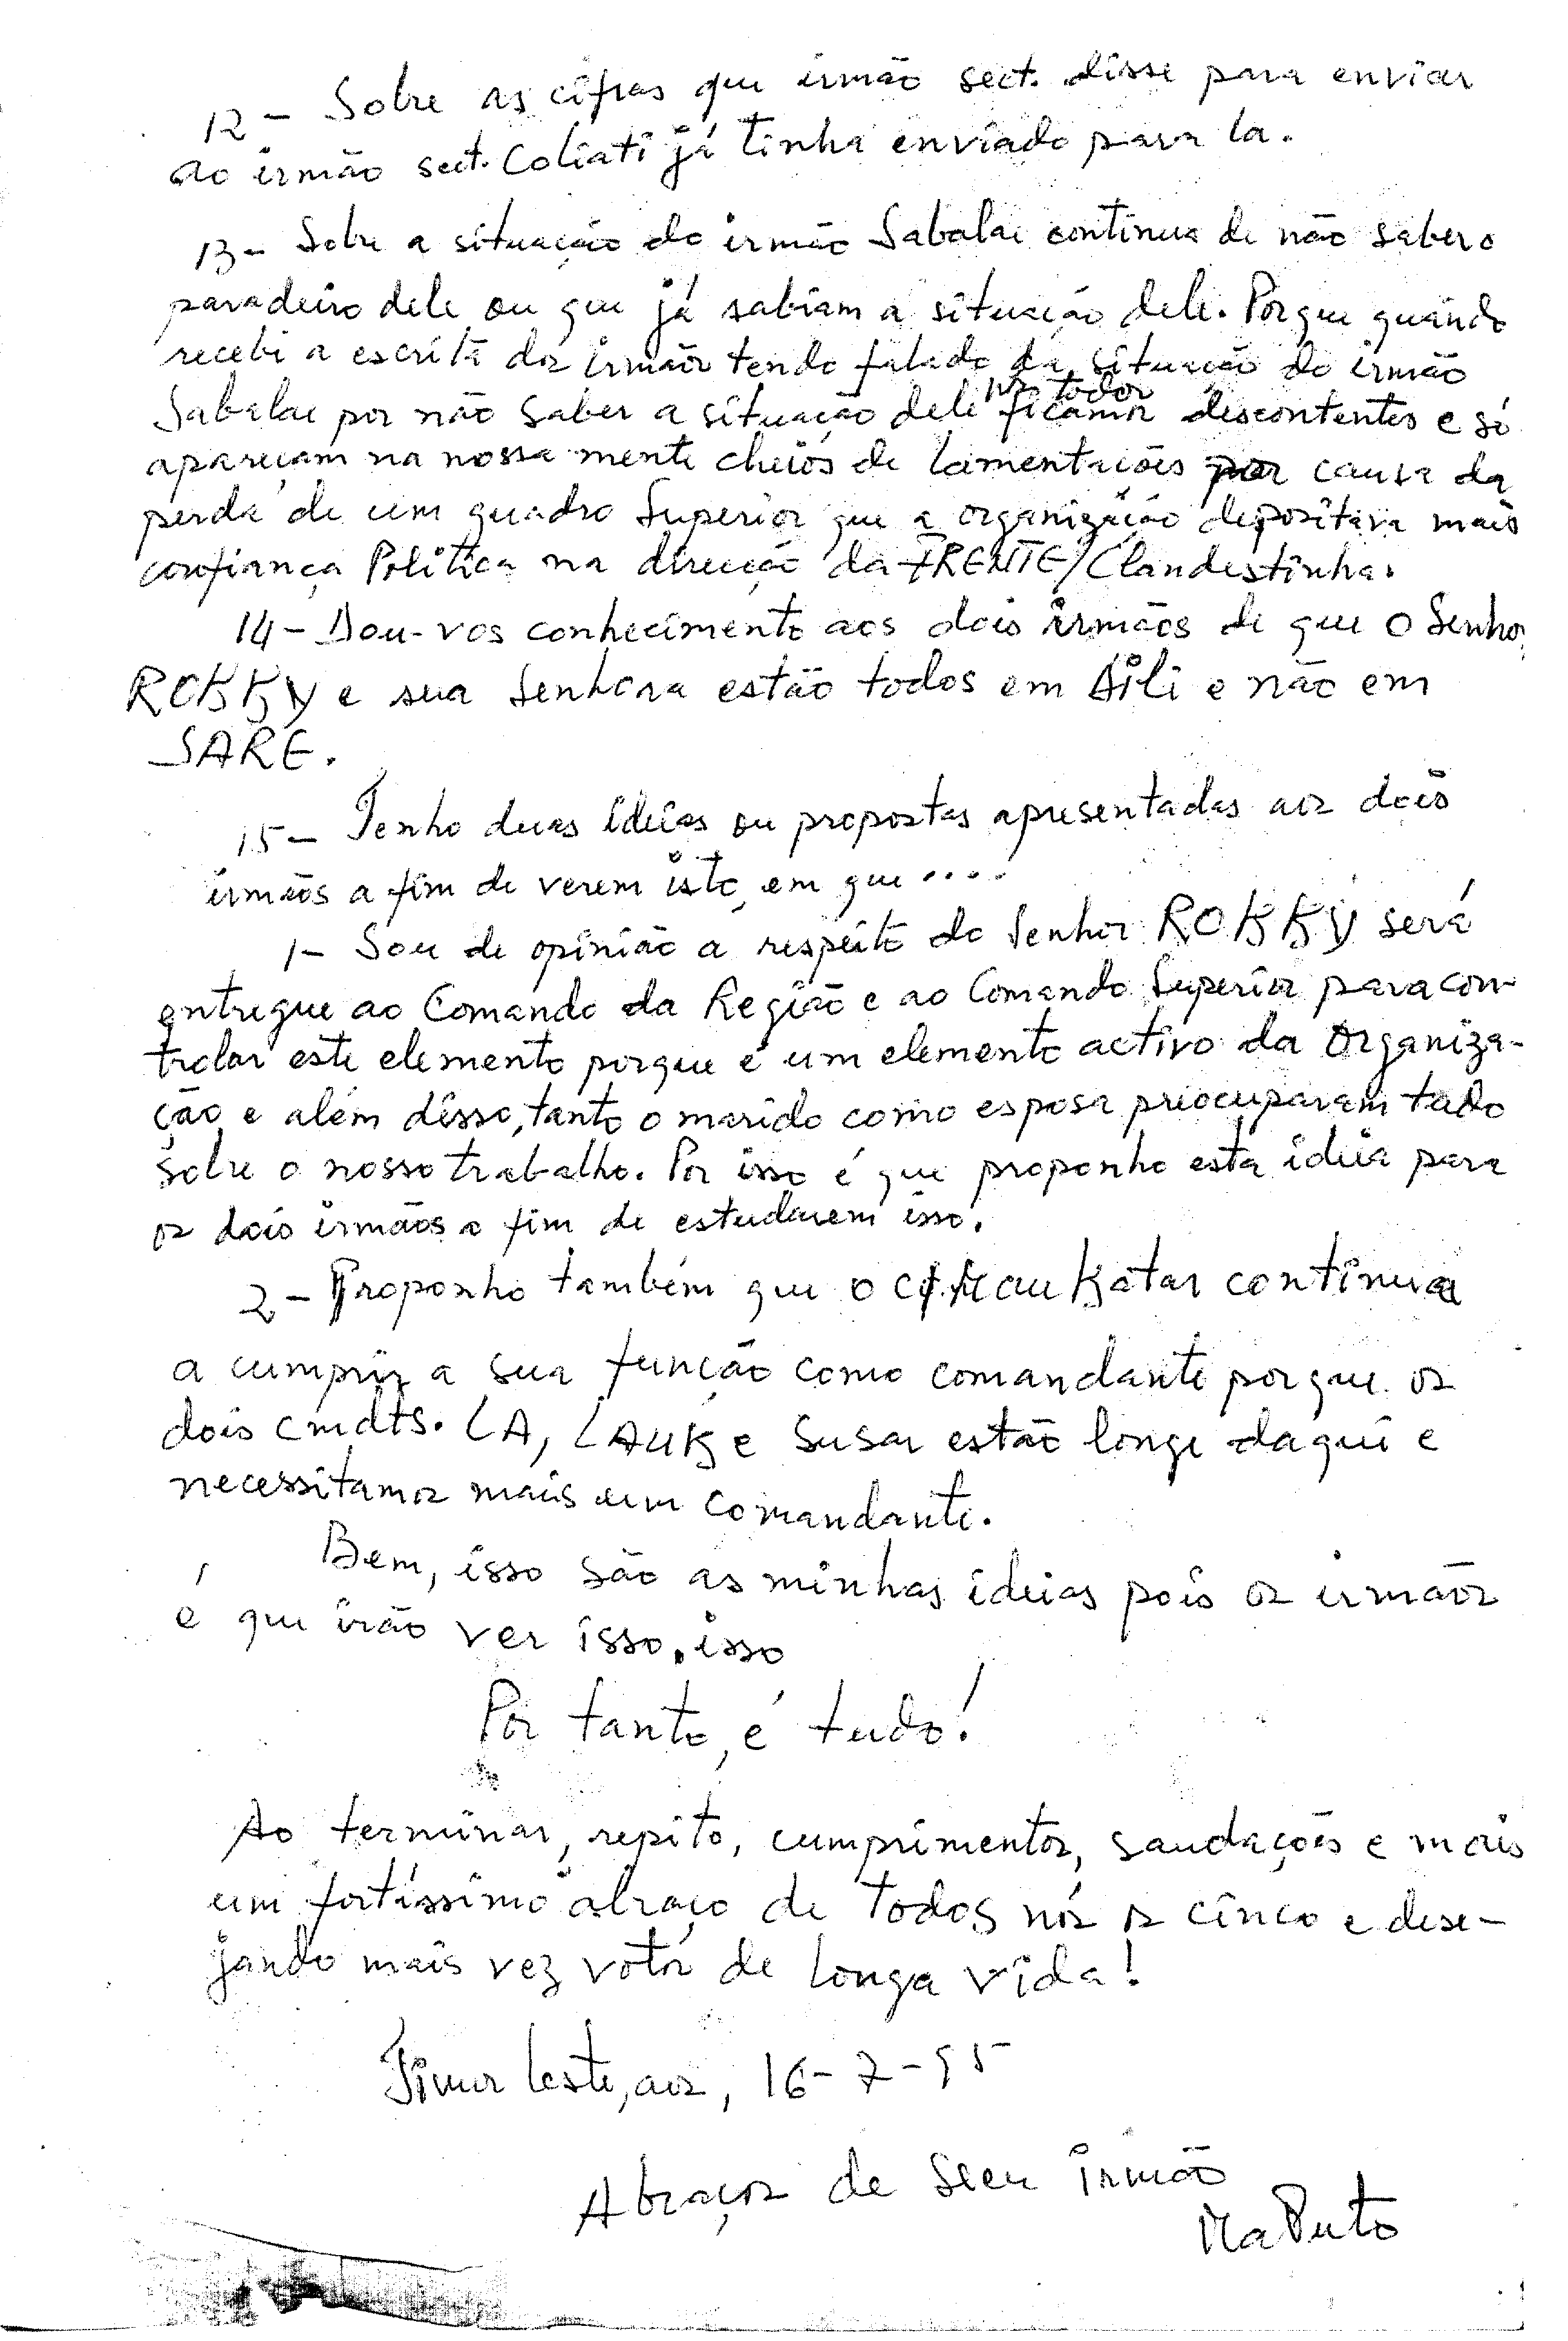 12 - Sobre as cifras que irmão sect. disse para enviar
ao irmão sect. Coliati já tinha enviado para la.
13 - Sobre a situação do irmão Sabalae continua de não saber o
paradeiro dele ou que já sabiam a situação dele. Porque quando
recebi a escrita dos irmãos tendo falado da situação do irmão
Sabalae por não saber a situação dele nós todos ficamos descontentes e só
apareçam na nossa mente cheios de lamentações por causa da
perda de um quadro Superior que a organização depositava mais
confiança Politica na direcção da FRENTE/Clandestinha.
14 - Dou-vos conhecimento aos dois irmãos de que o Senhor
ROKKY e sua Senhora estão todos em Díli e não em
SARE.
15 - Tenho duas ideias ou propostas apresentadas aos dois
irmãos a fim de verem isto, em que ....
1 - Sou de opinião a respeito do Senhor ROKKY será
entregue ao Comando da Região e ao Comando Superior para con-
trolar este elemento porque é um elemento activo da Organiza-
ção e além disso, tanto o marido como esposa preocuparam tudo
sobre o nosso trabalho. Por isso é que proponho esta ideia para
os dois irmãos a fim de estudarem isso.
2 - Proponho também que o Mau Katar continua
a cumprir a sua função como comandante porque os
dois cmdts. LA, LAUK e Susar estão longe daqui e
necessitamos mais um comandante.
Bem, isso são as minhas ideias pois os irmãos
é que irão ver isso. isso
Por tanto, é tudo!
Ao terminar, repito, cumprimentos, saudações e mais
um fortíssimo abraço de todos nós os cinco e dese-
jando mais vez votos de longa vida!
Timor Leste, aos, 16-7-95
Abraços de Seu irmão
MaPuto